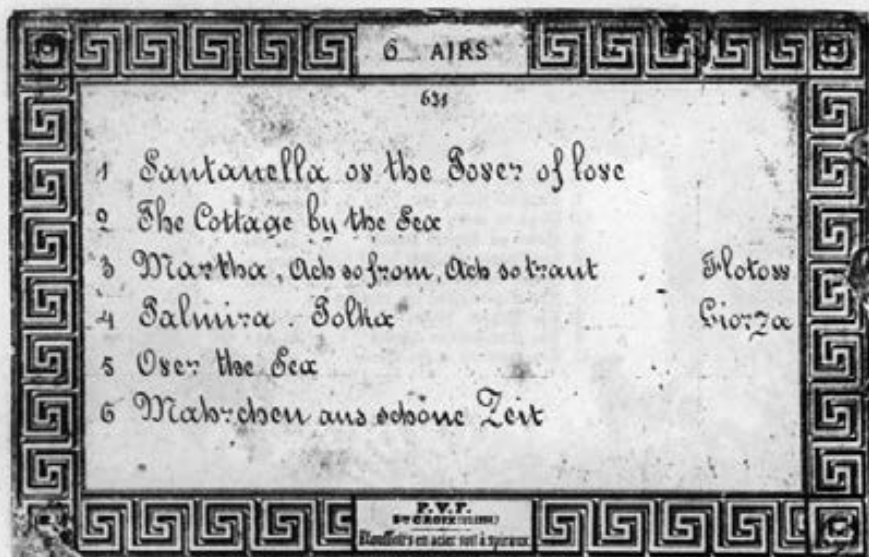 6 AIRS
631
1 Santanella or the Power of love
2 The Cottage by the Sea
3 Martha, Ach so from, Ach so traut . Flotow
4 Palmira . Polka Giorza
5 Over the Sea
6 Mahrchen aus schöne Zeit
F.V.F.
Ste CROIX (SUISSE)
Etouffoirs en acier soit à spiraux.